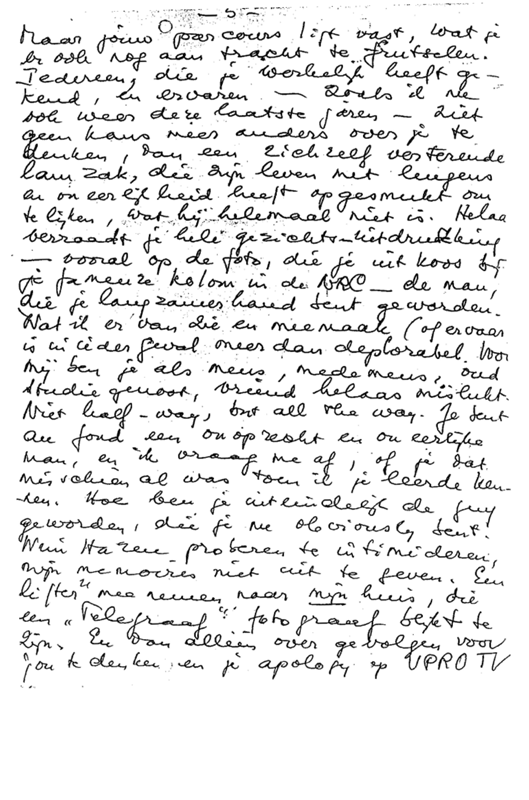 — 5 —
Maar jouw parcours ligt vast, wat je
er ook nog aan tracht te frutselen.
Iedereen, die je werkelijk heeft ge-
kend, en ervaren — zoals ik nu
ook weer deze laatste jaren — ziet
geen kans meer anders over je te
denken, dan een zichzelf verterende
lamzak, die zijn leven met leugens
en oneerlijkheid heeft opgesmukt om
te lijken, wat hij helemaal niet is. Helaas
verraadt je hele gezichts-uitdrukking
— vooral op de foto, die je uit koos bij
je fameuze kolom in de NRC — de man,
die je langzamerhand bent geworden.
Wat ik er van zie en meemaak (of ervaar
is in ieder geval meer dan deplorabel. Voor
mij ben je als mens, medemens, oud
studiegenoot, vriend helaas mislukt.
Niet half-way, but all the way. Je bent
au fond een onoprecht en oneerlijke
man, en ik vraag me af, of je dat
misschien al was toen ik je leerde ken-
nen. Hoe ben je uiteindelijk de guy
geworden, die je nu obviously bent.
Wim Hazeu proberen te intimideren,
mijn memoires niet uit te geven. Een
"lifter" mee nemen naar mijn huis, die
een "Telegraaf" fotograaf blijkt te
zijn. En dan alleen over gevolgen voor
jou te denken en je apology op VPRO TV